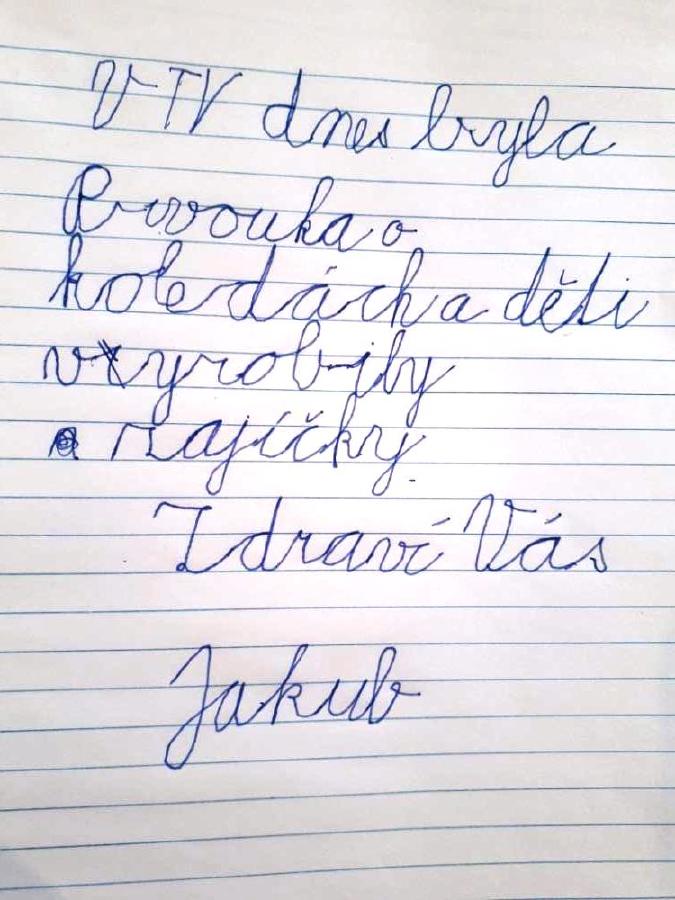 V TV dnes byla
Prvouka o
koledách a děti
vyrobily
zajíčky.
Zdraví Vás
Jakub